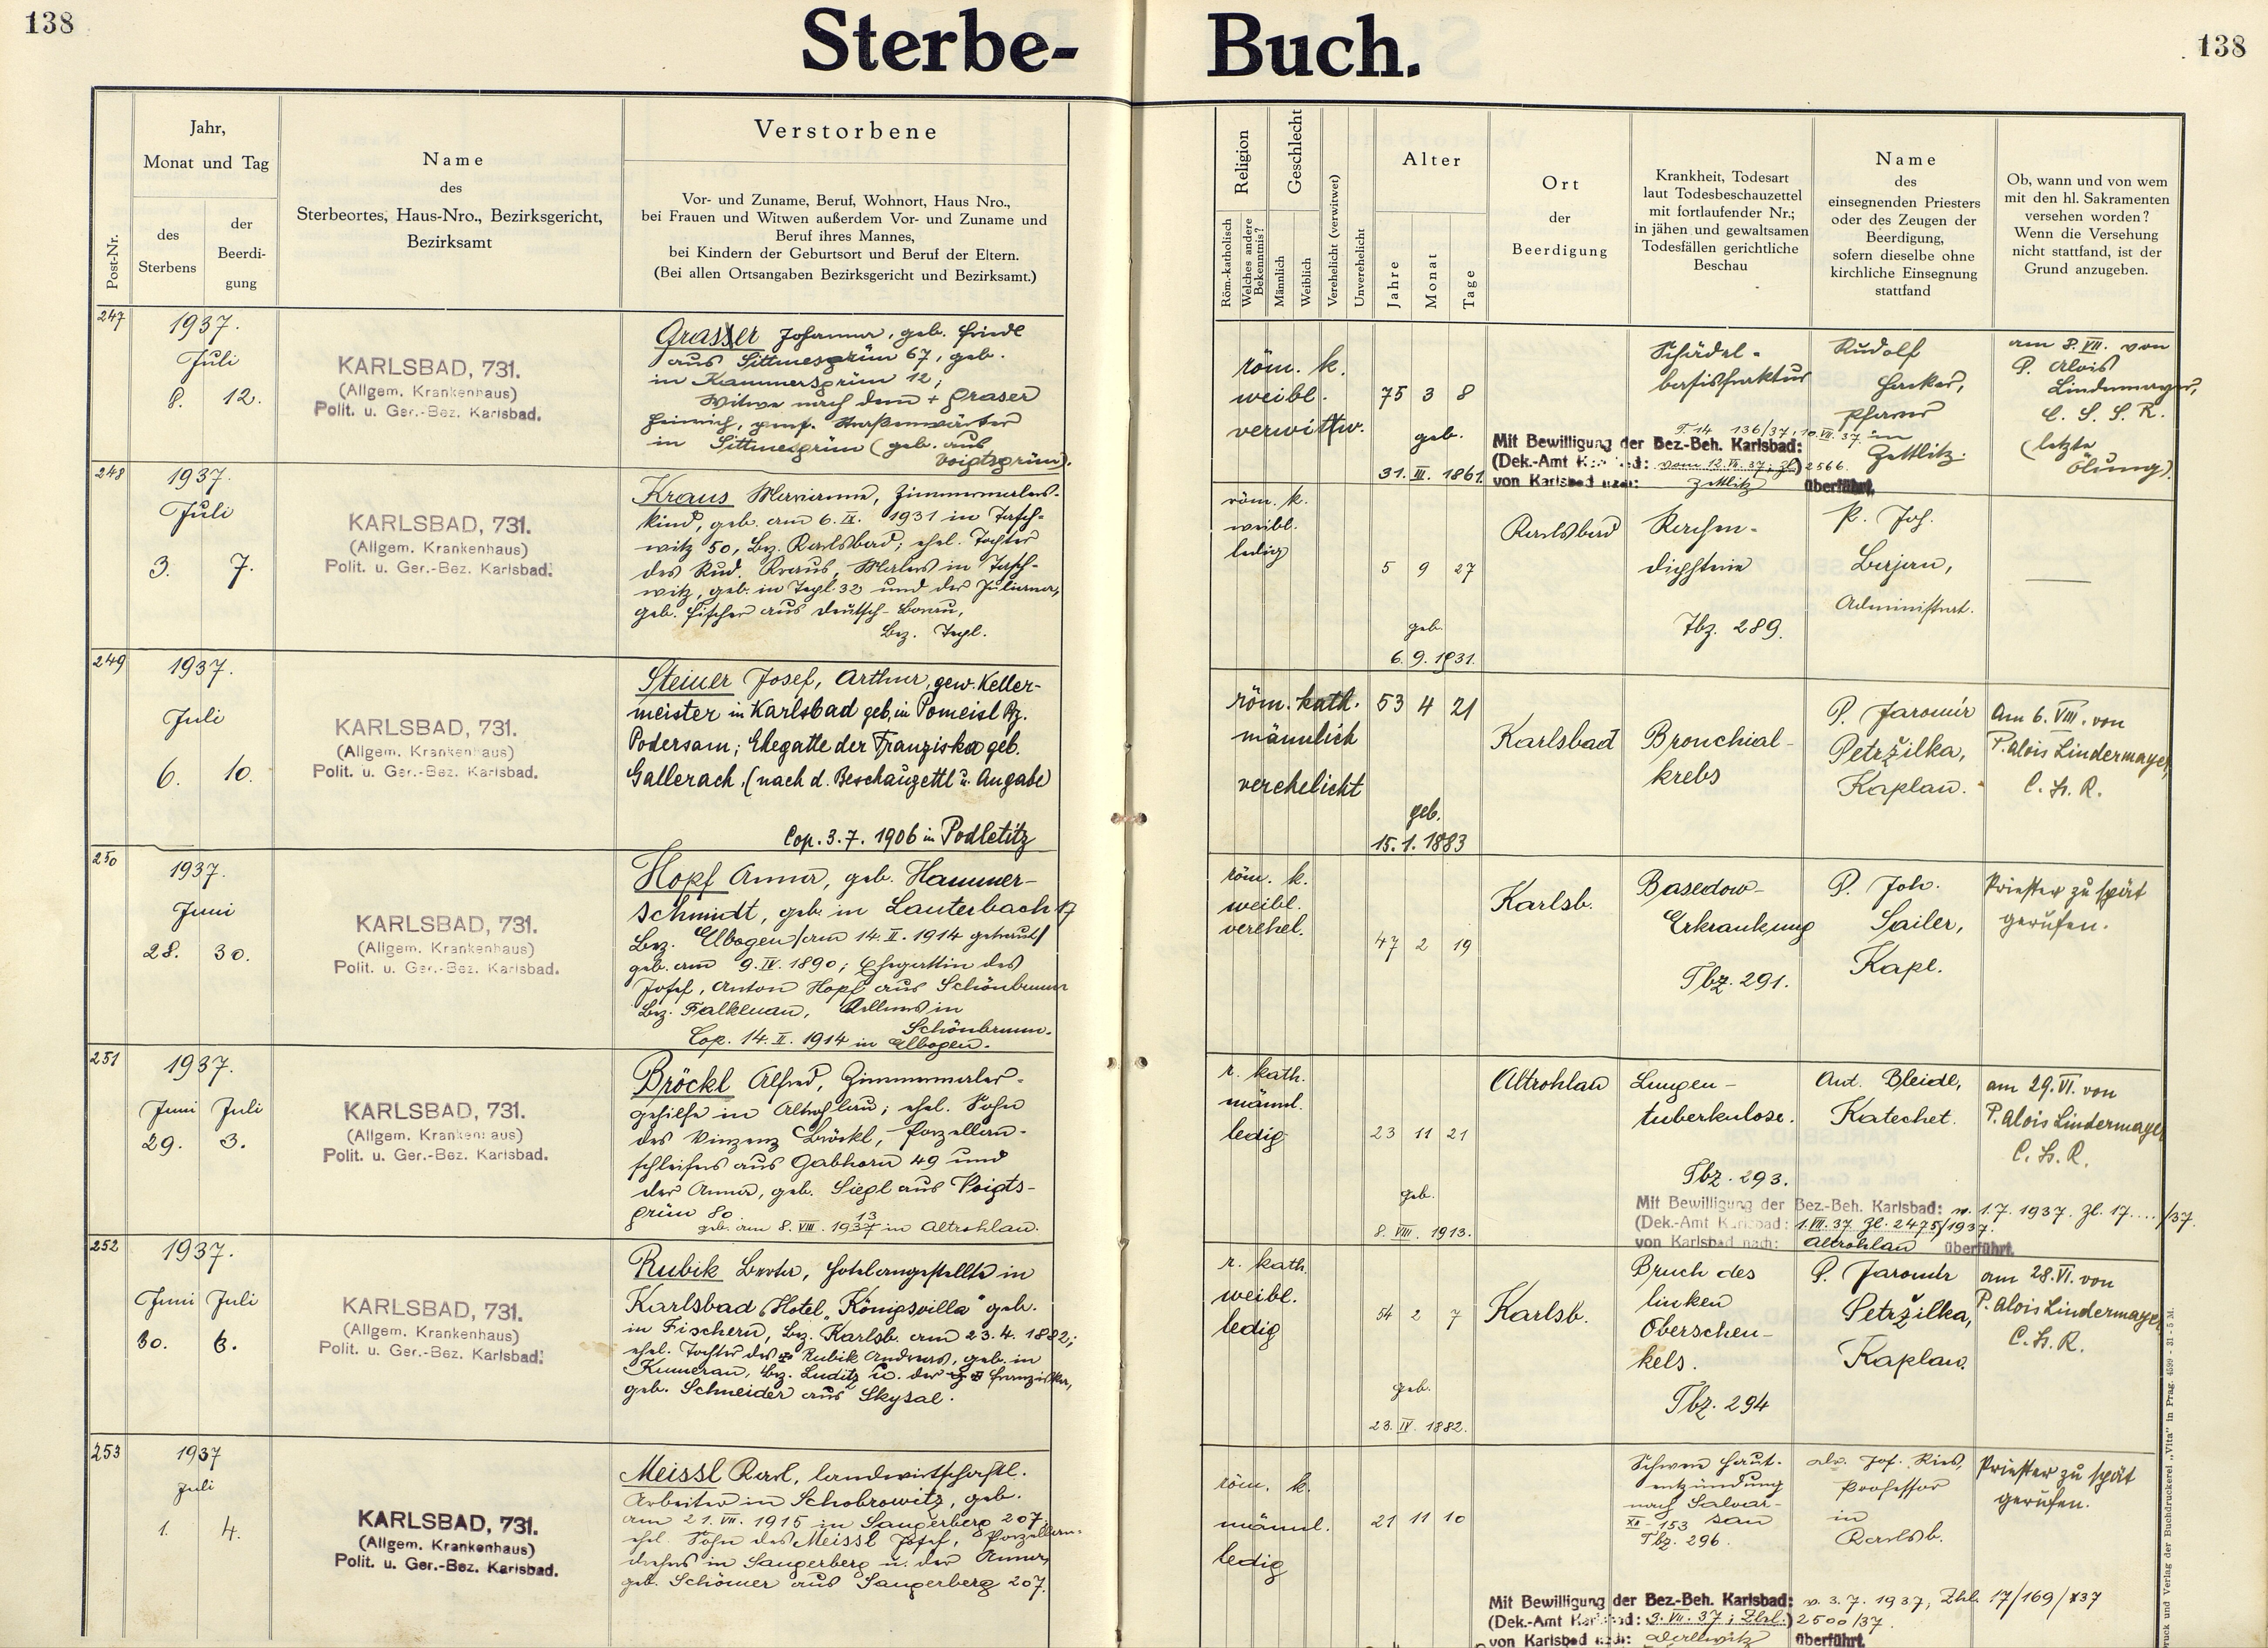 138
Sterbe-Buch.
138
Post-Nr.
Jahr,
Monat und Tag
des
Sterbens
der
Beerdi-
gung
Name
des
Sterbeortes, Haus-Nro., Bezirksgericht,
Bezirksamt
Verstorbene
Vor- und Zuname, Beruf, Wohnort, Haus Nro.,
bei Frauen und Witwen außerdem Vor- und Zuname und
Beruf ihres Mannes,
bei Kindern der Geburtsort und Beruf der Eltern.
(Bei allen Ortsangaben Bezirksgericht und Bezirksamt.)
Religion
Röm.-katholisch
Welches andere
Bekenntnis?
Geschlecht
Männlich
Weiblich
Verehelicht (verwitwet)
Unverehelicht
Alter
Jahre
Monat
Tage
Ort
der
Beerdigung
Krankheit, Todesart
laut Todesbeschauzettel
mit fortlaufender Nr.;
in jähen und gewaltsamen
Todesfällen gerichtliche
Beschau
Name
des
einsegnenden Priesters
oder des Zeugen der
Beerdigung,
sofern dieselbe ohne
kirchliche Einsegnung
stattfand
Ob, wann und von wem
mit den hl. Sakramenten
versehen worden?
Wenn die Versehung
nicht stattfand, ist der
Grund anzugeben.
247
1937.
Juli
8. 12.
KARLSBAD, 731.
(Allgem. Krankenhaus)
Polit. u. Ger.-Bez. Karlsbad.
Grasser Johanna, geb. Friedl
aus Sittmesgrün 67, geb.
in Kammersgrün 12;
Witwe nach dem + Graser
Heinrich, gew. Straßenwärter
in Sittmesgrün (geb. aus
Voigtsgrün).
röm. k.
weibl.
verwittw.
75 3 8
geb.
31. III. 1861.
Schädel-
basisfraktur
Rudolf
Hacker,
Pfarrer
in
Zettlitz.
am 8. VII. von
P. Alois
Lindemayer,
C. S. S. R.
(letzte
Ölung)
136/37, 10. VII. 37.
Mit Bewilligung der Bez.-Beh. Karlsbad:
(Dek.-Amt Karlsbad: vom 12. VII. 37; Zl.) 2566.
von Karlsbad nach: Zettlitz überführt.
248
1937.
Juli
3. 7.
KARLSBAD, 731.
(Allgem. Krankenhaus)
Polit. u. Ger.-Bez. Karlsbad.
Kraus Marianne, Zimmermalers-
kind, geb. am 6. IX. 1931 in Tasch-
witz 50, Bez. Karlsbad; ehel. Tochter
des Rud. Kraus, Malers in Tasch-
witz, geb. in Tepl 32 und der Juliana,
geb. Fischer aus Deutsch-Borau,
Bez. Tepl.
röm. k.
weibl.
ledig
5 9 27
geb.
6. 9. 1931.
Karlsbad
Rachen-
diphterie
Tbz. 289.
P. Joh.
Bajan,
Administrat.
249
1937.
Juli
6. 10.
KARLSBAD, 731.
(Allgem. Krankenhaus)
Polit. u. Ger.-Bez. Karlsbad.
Steiner Josef, Arthur, gew. Keller-
meister in Karlsbad geb. in Pomeisl Bz.
Podersam; Ehegatte der Franziska geb.
Gallerach, (nach d. Beschauzettl u. Angabe)
Cop. 3. 7. 1906 in Podletitz
röm. kath.
männlich
verehelicht
53 4 21
geb.
15. 1. 1883
Karlsbad
Bronchial-
krebs
P. Jaromír
Petržilka,
Kaplan.
Am 6. VIII. von
P. Alois Lindermayer,
C. Ss. R.
250
1937.
Juni
28. 30.
KARLSBAD, 731.
(Allgem. Krankenhaus)
Polit. u. Ger.-Bez. Karlsbad.
Hopf Anna, geb. Hammer-
schmidt, geb. in Lauterbach 17
Bez. Elbogen /am 14. II. 1914 getraut/
geb. am 9. IV. 1890; Ehegattin des
Josef, Anton Hopf aus Schönbrunn
Bez. Falkenau, in
Schönbrunn.
Cop. 14. II. 1914 in Elbogen.
röm. k.
weibl.
verehel.
47 2 19
Karlsb.
Basedow-
Erkrankung
Tbz. 291.
P. Joh.
Sailer,
Kapl.
Priester zu spät
gerufen.
251
1937.
Juni Juli
29. 3.
KARLSBAD, 731.
(Allgem. Krankenhaus)
Polit. u. Ger.-Bez. Karlsbad.
Bröckl Alfred, Zimmermaler-
gehilfe in Altrohlau; ehel. Sohn
des Vinzenz Bröckl, Porzellan-
schleifers aus Gabhorn 49 und
der Anna, geb. Siegl aus Voigts-
grün 80.
13
geb. am 8. VIII. 1937 in Altrohlau.
r. kath.
männl.
ledig
23 11 21
geb.
8. VIII. 1913.
Altrohlau
Lungen-
tuberkulose.
Tbz. 293.
Ant. Bleidl,
Katechet.
am 29. VI. von
P. Alois Lindermayer
C. Ss. R.
Mit Bewilligung der Bez.-Beh. Karlsbad: v. 1. 7. 1937. Zl. 17..../37.
(Dek.-Amt Karlsbad: 1. VII. 37 Zl. 2475/1937.
von Karlsbad nach: Altrohlau überführt.
252
1937.
Juni Juli
30. 6.
KARLSBAD, 731.
(Allgem. Krankenhaus)
Polit. u. Ger.-Bez. Karlsbad.
Rubik Berta, Hotelangestellte in
Karlsbad (Hotel „Königsvilla" geb.
in Fischern, Bez. Karlsb. am 23. 4. 1882;
ehel. Tochter des Rubik Andreas, geb. in
Kumerau, Bez. Luditz u. der Franziska,
geb. Schneider aus Skytal.
r. kath.
weibl.
ledig
54 2 7
geb.
23. IV. 1882.
Karlsb.
Bruch des
linken
Oberschen-
kels.
Tbz. 294
P. Jaromír
Petržilka,
Kaplan.
am 28. VI. von
P. Alois Lindermayer
C. Ss. R.
253
1937
Juli
1. 4.
KARLSBAD, 731.
(Allgem. Krankenhaus)
Polit. u. Ger.-Bez. Karlsbad.
Meissl Karl, landwirtschaftl.
Arbeiter in Schobrowitz, geb.
am 21. VII. 1915 in Sangerberg 207;
ehel. Sohn des Meissl Josef, Porzellan-
drehers in Sangerberg u. der Anna,
geb. Schömer aus Sangerberg 207.
röm. k.
männl.
ledig
21 11 10
Schwere Haut-
entzündung
nach Salvar-
san
XII-153
Tbz. 296.
Jos. Ries,
Professor
in
Karlsb.
Priester zu spät
gerufen.
Mit Bewilligung der Bez.-Beh. Karlsbad: v. 3. 7. 1937, Zhl. 17/169/37
(Dek.-Amt Karlsbad: 3. VII. 37; Zhl.) 2500/37.
von Karlsbad nach: überführt.
Druck und Verlag der Buchdruckerei „Vita" in Prag. 4599 - 31 - 5 M.